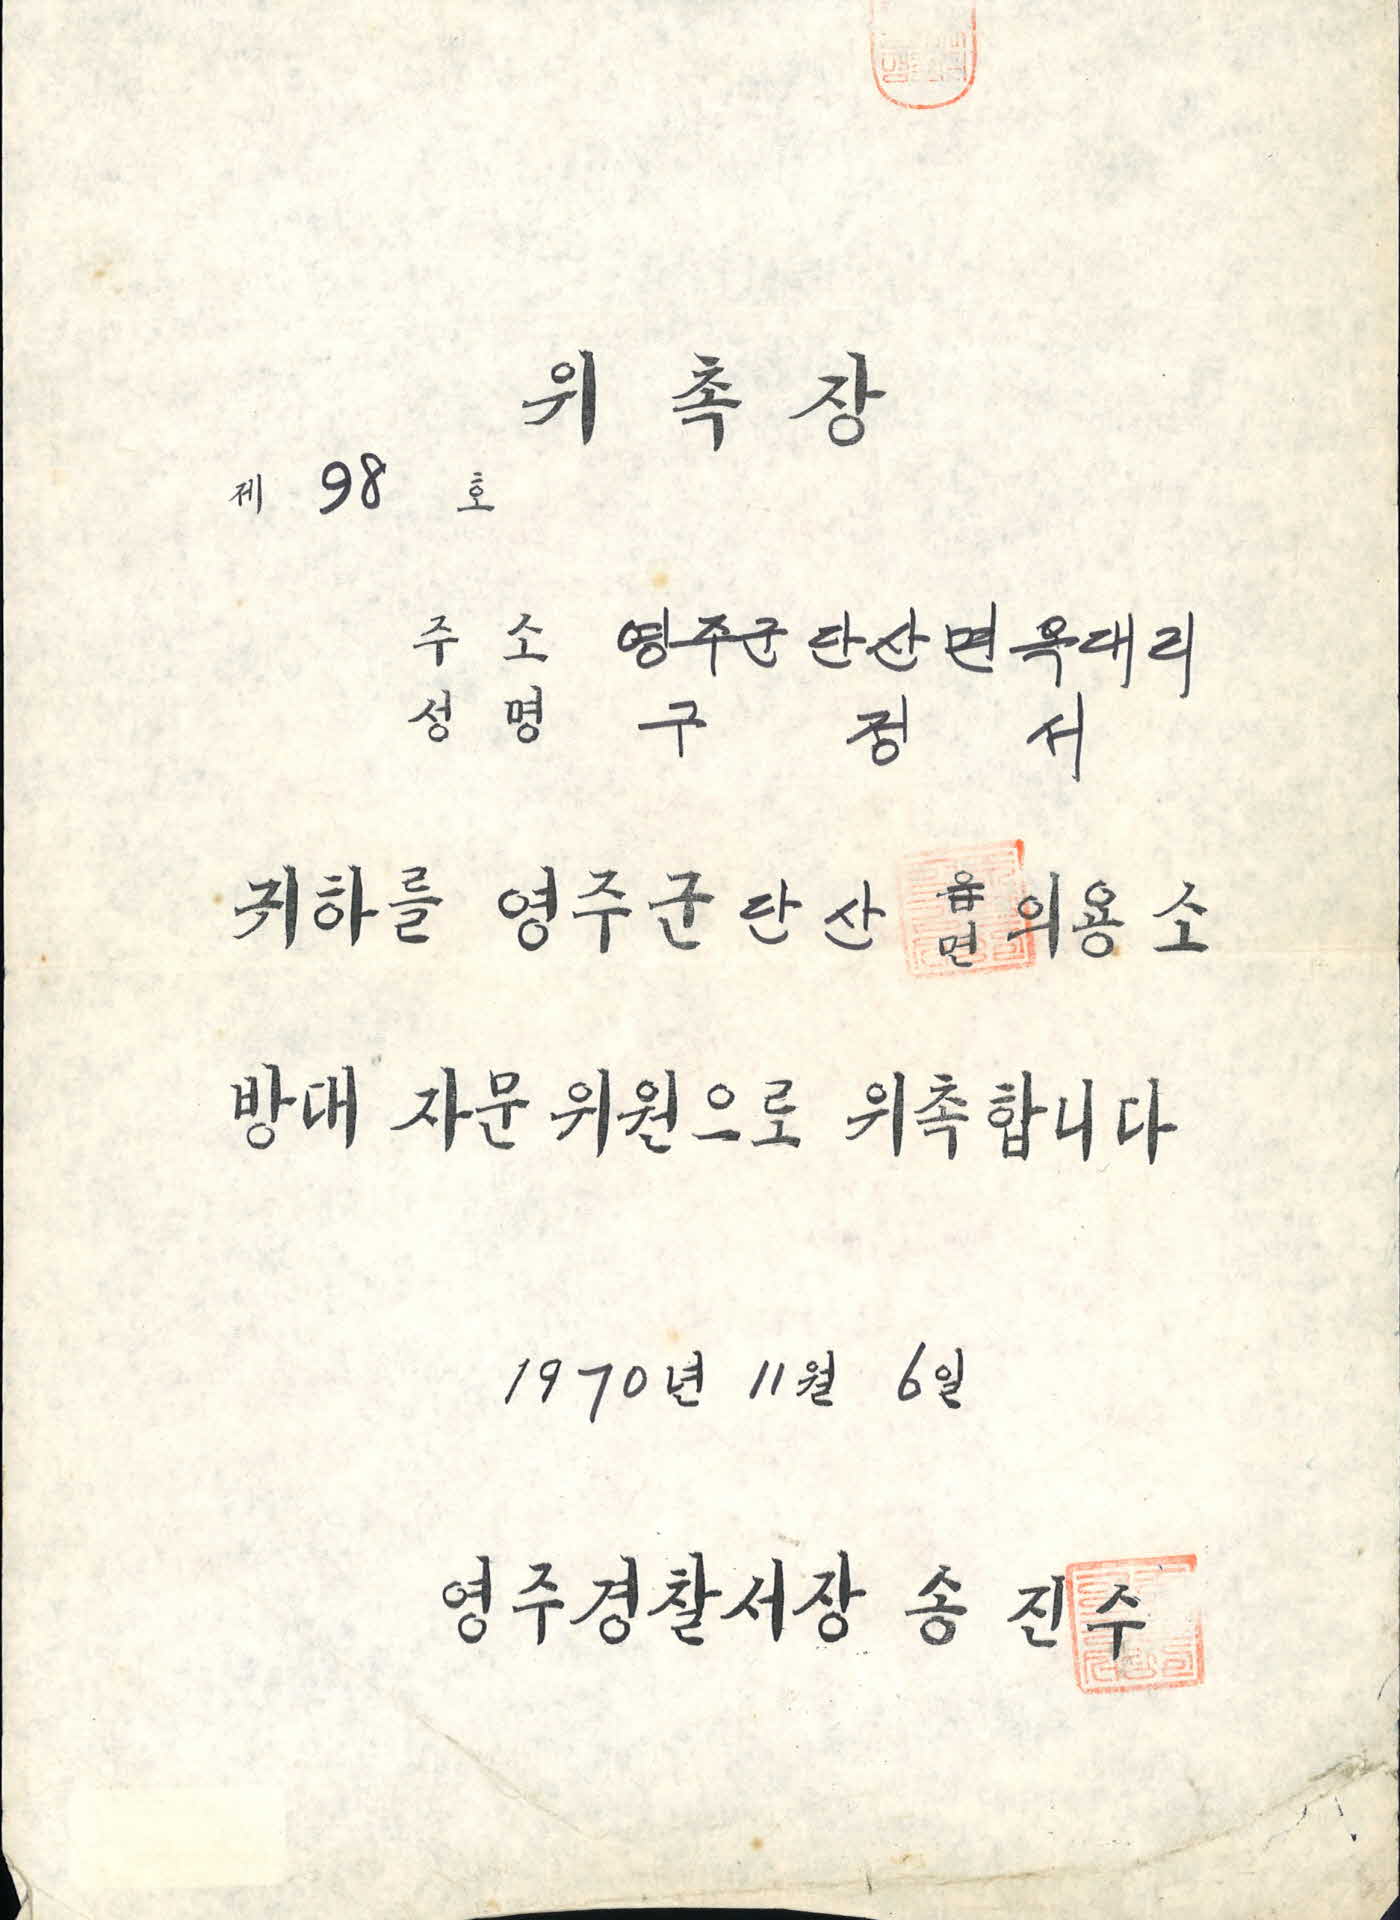 위 촉 장
제 98 호
주 소 영주군 단산면 옥대리
성 명 구 정 서
귀하를 영주군 단산 읍 면 의용소
방대 자문위원으로 위촉합니다
1970년 11월 6일
영주경찰서장 송 진 수